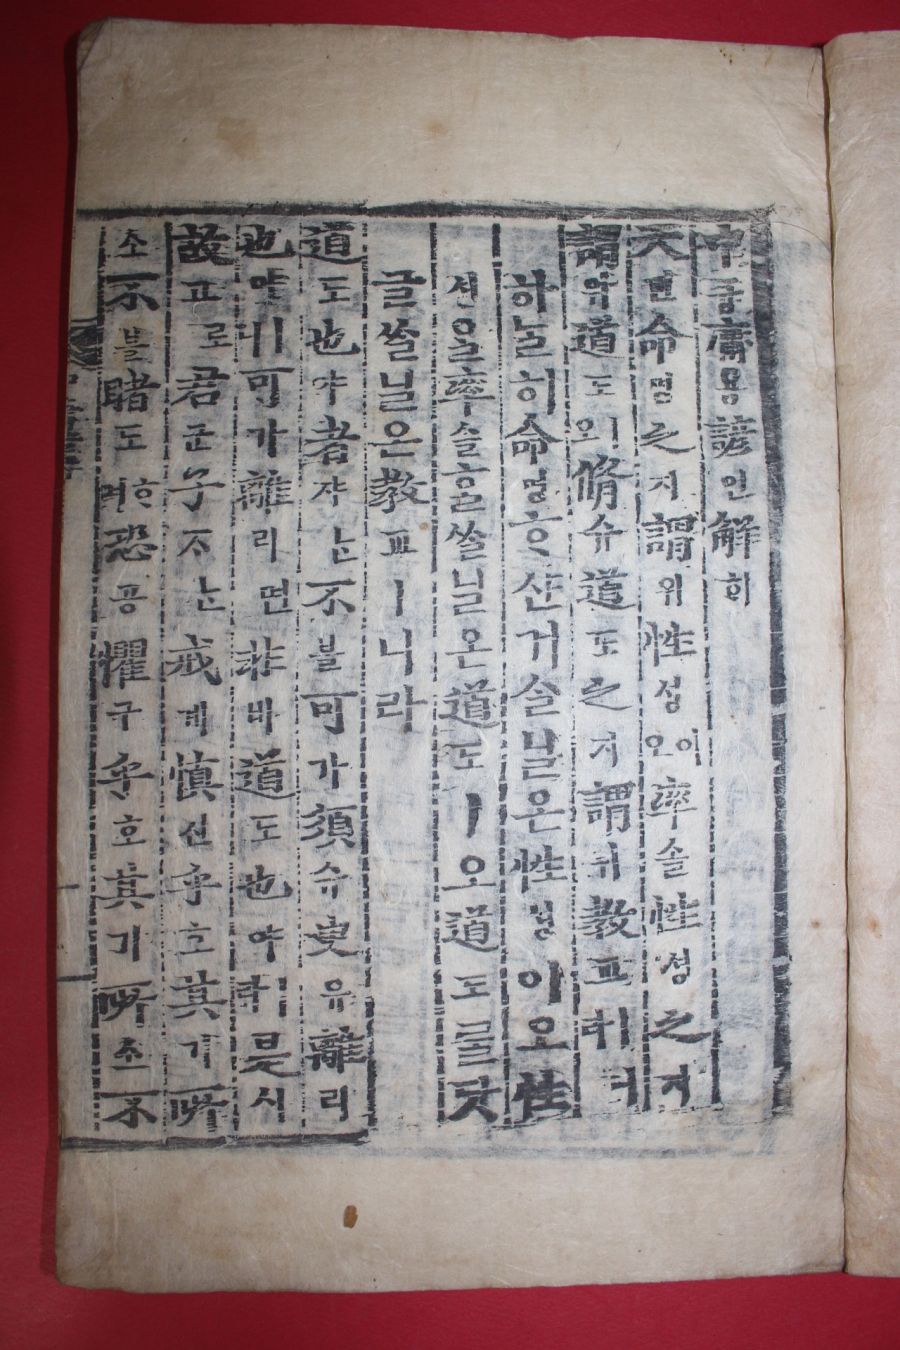 中듕庸용諺언解ᄒᆡ
天텬命명之지謂위性셩이오率솔性셩之지
謂위道도ㅣ오脩슈道도之지謂위敎교ㅣ니라
하ᄂᆞᆯ히命명ᄒᆞ샨거ᄉᆞᆯ닐온性셩이오性
셩을率솔ᄒᆞᆯᄊᆞᆯ닐온道도ㅣ오道도를닷
글ᄊᆞᆯ닐온敎교ㅣ니라
道도也야者쟈ᄂᆞᆫ不블可가須슈臾유離리
也야ㅣ니可가離리면非비道도也야ㅣ라是시
故고로君군子ᄌᆞᄂᆞᆫ戒계愼신乎호其기所
소不블睹도ᄒᆞ며恐공懼구乎호其기所소不